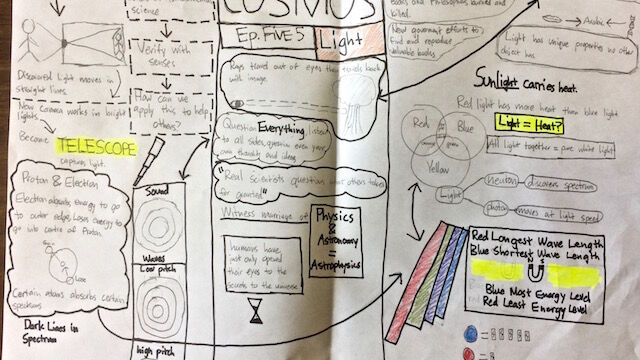 science
Verify with
senses
How can we
apply this to help
others?
Discovered Light moves in
straight lines.
Now Camera works in bright
lights.
Become TELESCOPE
captures light.
Proton & Electron
Electron absorbs Energy to go
to outer edge, Loses energy to
go into centre of Proton.
Certain atoms absorbs certain
spectrums
Dark Lines in
Spectrum
Sound
Waves
Low pitch
high pitch
COSMOS
Ep. FIVE 5
Light
Rays travel out of eyes then travels back
with image.
Question Everything listen
to all sides, question even your
own thoughts and ideas
"Real scientists question what others take
for granted"
Witness marriage of
Physics
&
Astronomy
=
Astrophysics
humans have
just only opened
their eyes to the
secrets to the universe
Books and Philosophers buried and
killed.
New government efforts to
find and reproduce
valuable books
Arabic
Light has unique properties no other
object has
Sunlight carries heat.
Red light has more heat than blue light
Red
Blue
Yellow
Light = Heat?
All light together = pure white light
Light
neutron
discovers spectrum
photon
moves at light speed
Red Longest Wave Length
Blue Shortest Wave Length
N S
Blue Most Energy Level
Red Least Energy Level